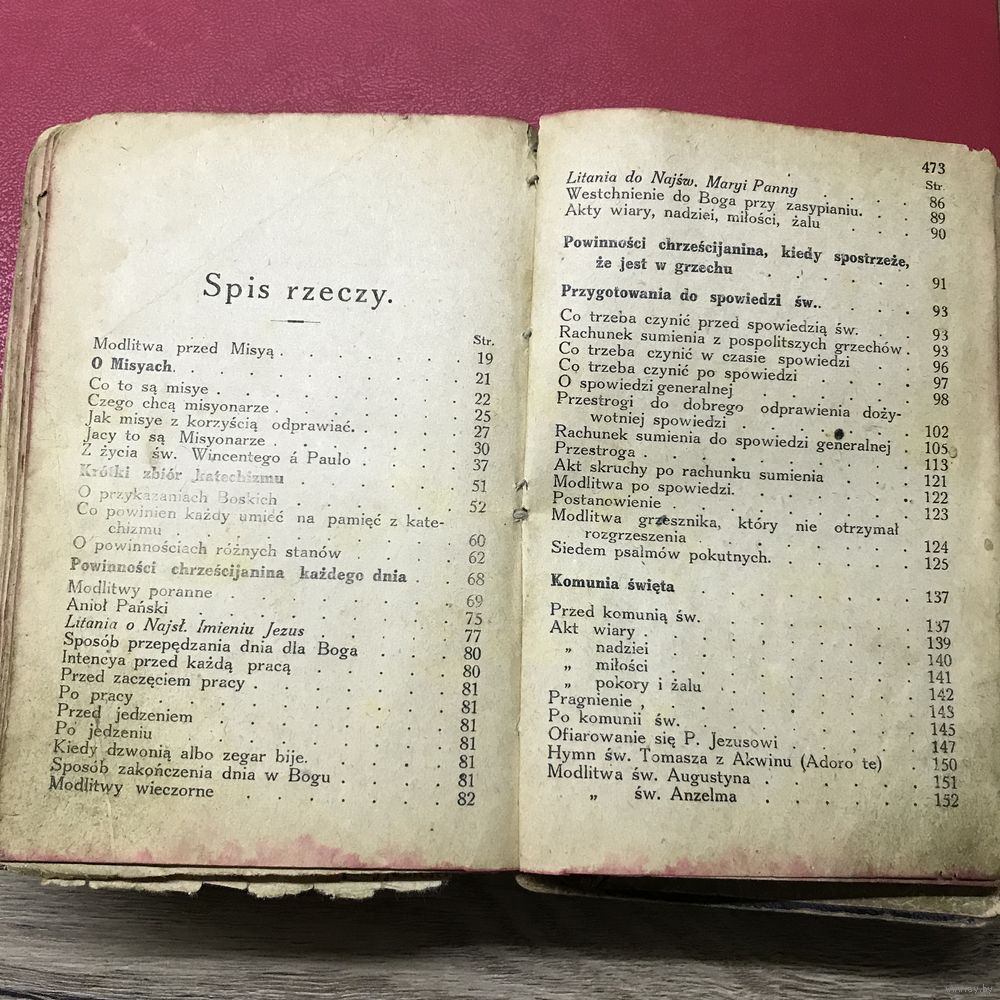 Spis rzeczy.
Str.
Modlitwa przed Misyą . . . . . . . 19
O Misyach. . . . . . . . . 21
Co to są misye . . . . . . . . 22
Czego chcą misyonarze . . . . . . . 25
Jak misye z korzyścią odprawiać. . . . . 27
Jacy to są Misyonarze . . . . . . . 30
Z życia św. Wincentego á Paulo . . . . 37
Krótki zbiór katechizmu . . . . . . 51
O przykazaniach Boskich . . . . . . 52
Co powinien każdy umieć na pamięć z kate-
chizmu . . . . . . . . . 60
O powinnościach różnych stanów . . . . 62
Powinności chrześcijanina każdego dnia . . 68
Modlitwy poranne . . . . . . . 69
Anioł Pański . . . . . . . . 75
Litania o Najsł. Imieniu Jezus . . . . 77
Sposób przepędzania dnia dla Boga . . . 80
Intencya przed każdą pracą . . . . . 80
Przed zaczęciem pracy . . . . . . 81
Po pracy . . . . . . . . . 81
Przed jedzeniem . . . . . . . 81
Po jedzeniu . . . . . . . . 81
Kiedy dzwonią albo zegar bije. . . . . 81
Sposób zakończenia dnia w Bogu . . . . 81
Modlitwy wieczorne . . . . . . 82
473
Str.
Litania do Najśw. Maryi Panny . . . . 86
Westchnienie do Boga przy zasypianiu. . . 89
Akty wiary, nadziei, miłości, żalu . . . 90
Powinności chrześcijanina, kiedy spostrzeże,
że jest w grzechu . . . . . . 91
Przygotowania do spowiedzi św.. . . . . 93
Co trzeba czynić przed spowiedzią św. . . 93
Rachunek sumienia z pospolitszych grzechów . 93
Co trzeba czynić w czasie spowiedzi . . . 96
Co trzeba czynić po spowiedzi . . . . 97
O spowiedzi generalnej . . . . . . 98
Przestrogi do dobrego odprawienia doży-
wotniej spowiedzi . . . . . . 102
Rachunek sumienia do spowiedzi generalnej . 105
Przestroga . . . . . . . . 113
Akt skruchy po rachunku sumienia . . . 121
Modlitwa po spowiedzi. . . . . . 122
Postanowienie . . . . . . . 123
Modlitwa grzesznika, który nie otrzymał
rozgrzeszenia . . . . . . . 124
Siedem psalmów pokutnych. . . . . 125
Komunia święta . . . . . . . 137
Przed komunią św. . . . . . . 137
Akt wiary . . . . . . . . 139
„ nadziei . . . . . . . 140
„ miłości . . . . . . . 141
„ pokory i żalu . . . . . . 142
Pragnienie , . . . . . . . 143
Po komunii św. . . . . . . . 145
Ofiarowanie się P. Jezusowi . . . . . 147
Hymn św. Tomasza z Akwinu (Adoro te) . 150
Modlitwa św. Augustyna . . . . . 151
„ św. Anzelma . . . . . 152
www.ay.by